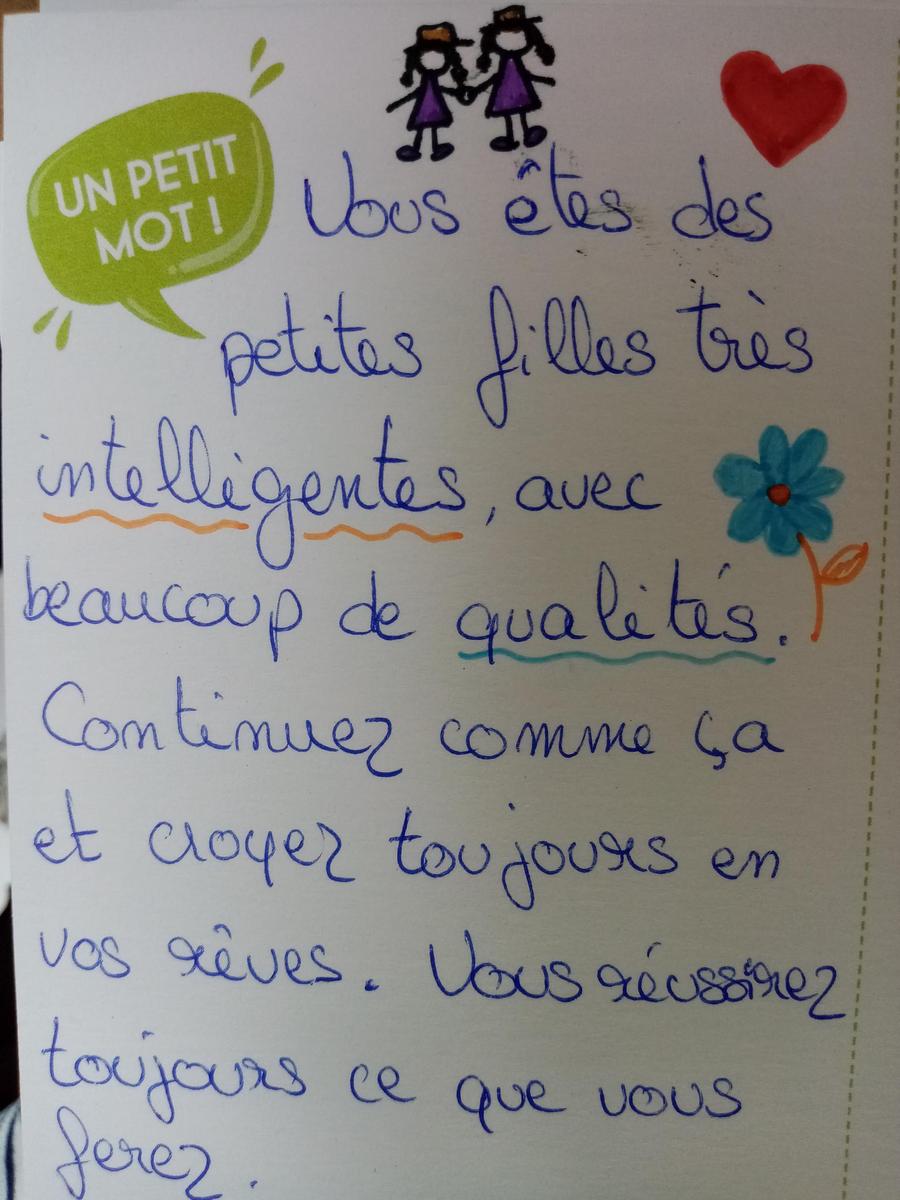 UN PETIT
MOT !
Vous êtes des
petites filles très
intelligentes, avec
beaucoup de qualités.
Continuez comme ça
et croyez toujours en
vos rêves. Vous réussirez
toujours ce que vous
ferez.